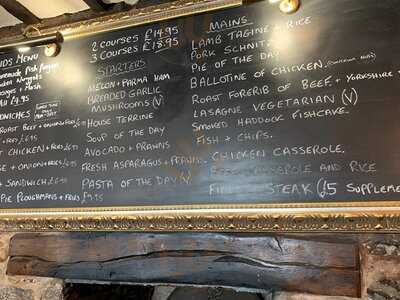 KIDS MENU
Homemade Fish fingers
Chicken Nuggets
Sausages + Mash
All £4.95
SANDWICHES
ROAST BEEF + ONION + FRIES £6.95
CHICKEN + FRIES £6.95
+ ONION + FRIES £6.95
SANDWICH. £6.95
PIE PLOUGHMANS + FRIES £9.95
2 COURSES £14.95
3 COURSES £18.95
STARTERS
MELON + PARMA HAM
BREADED GARLIC
MUSHROOMS (V)
HOUSE TERRINE
SOUP OF THE DAY
AVOCADO + PRAWNS
FRESH ASPARAGUS + PRAWNS.
PASTA OF THE DAY (V)
MAINS
LAMB TAGINE + RICE
PORK SCHNITZEL
PIE OF THE DAY
BALLOTINE OF CHICKEN.
ROAST FORERIB OF BEEF. + YORKSHIRE +
LASAGNE VEGETARIAN (V)
SMOKED HADDOCK FISHCAKE.
FISH + CHIPS.
CHICKEN CASSEROLE.
CASSEROLE AND RICE
STEAK (£5 SUPPLEME